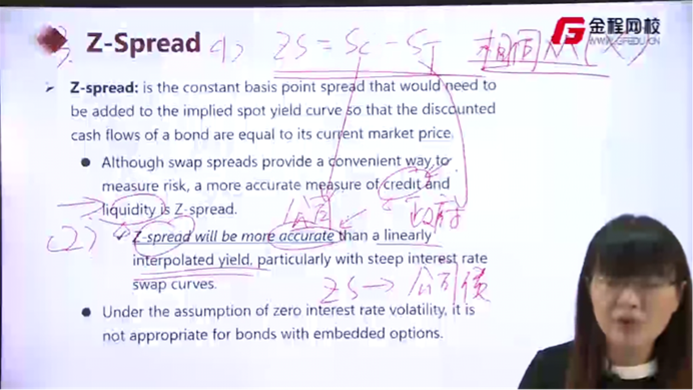 Z-Spread
ZS = Sc - ST
金程网校
WWW.GFEDU.CN
Z-spread: is the constant basis point spread that would need to
be added to the implied spot yield curve so that the discounted
cash flows of a bond are equal to its current market price.
Although swap spreads provide a convenient way to
measure risk, a more accurate measure of credit and
liquidity is Z-spread.
(2)
Z-spread will be more accurate than a linearly
interpolated yield, particularly with steep interest rate
swap curves.
ZS → 公司债
Under the assumption of zero interest rate volatility, it is
not appropriate for bonds with embedded options.